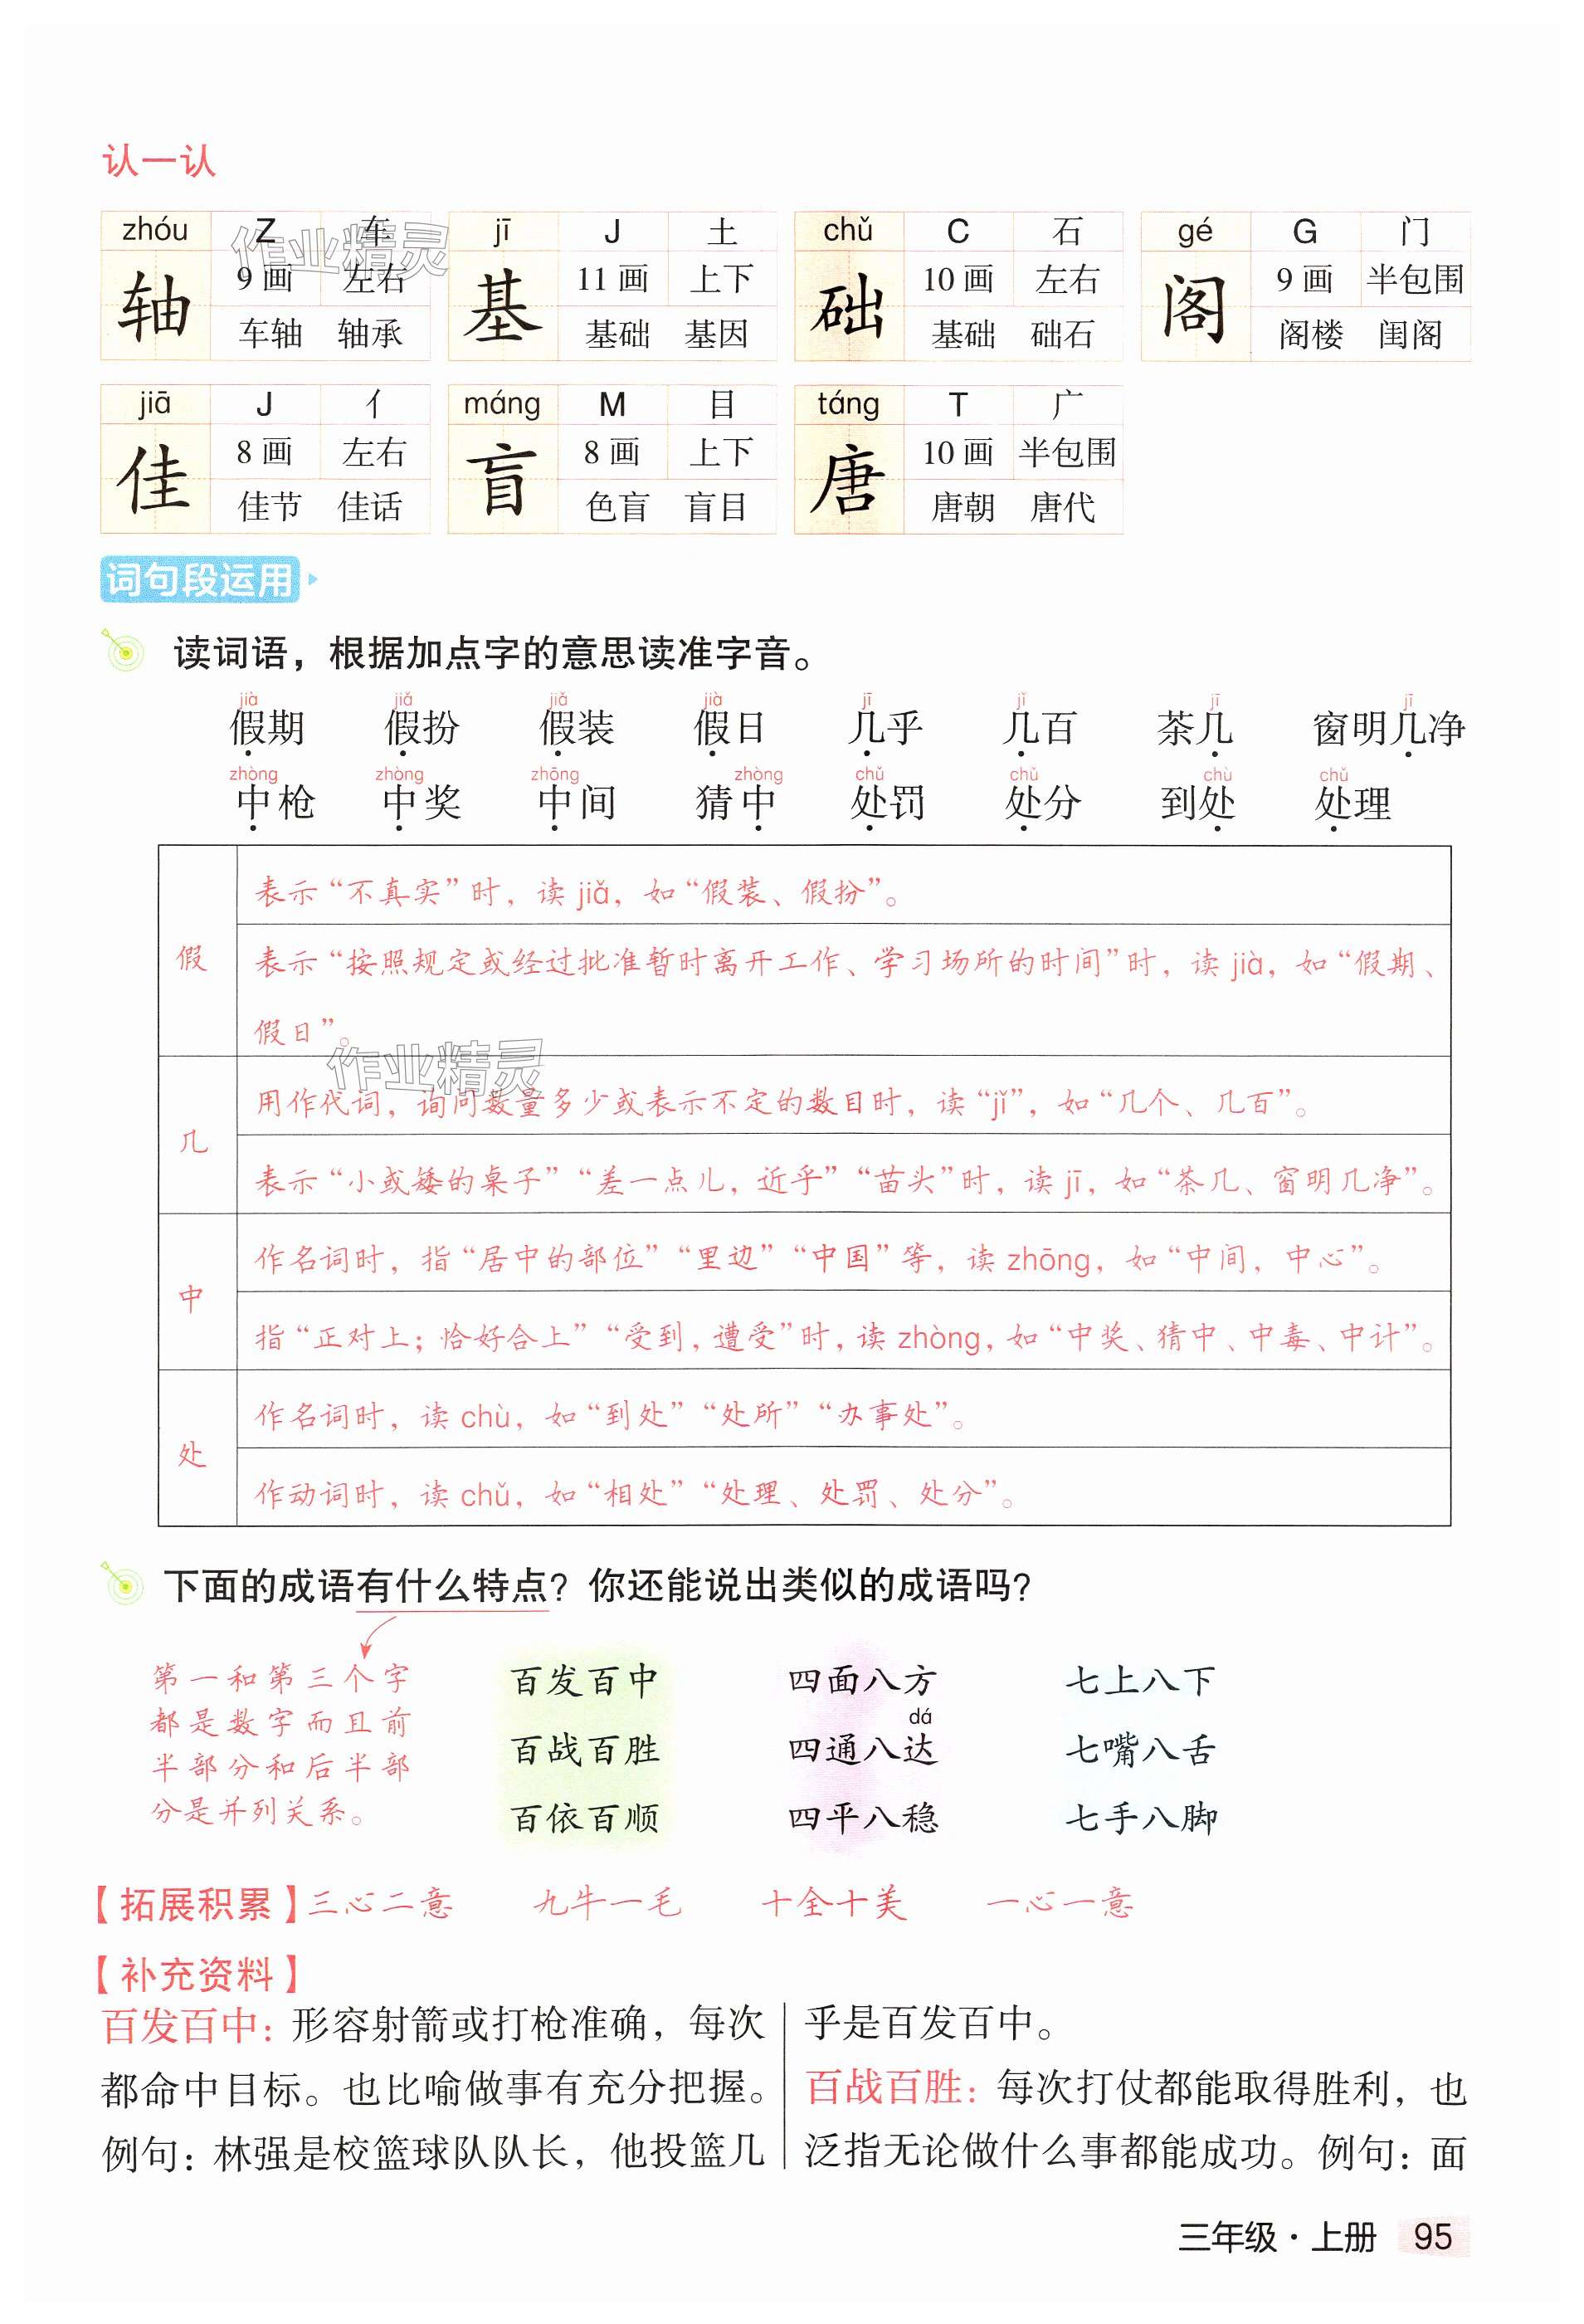 认一认
zhóu Z 车 jī J 土 chǔ C 石 gé G 门
轴 9画 左右 基 11画 上下 础 10画 左右 阁 9画 半包围
车轴 轴承 基础 基因 基础 础石 阁楼 闺阁
作业精灵
jiā J 亻 máng M 目 táng T 广
佳 8画 左右 盲 8画 上下 唐 10画 半包围
佳节 佳话 色盲 盲目 唐朝 唐代
词句段运用
读词语，根据加点字的意思读准字音。
jià jiǎ jiǎ jià jī jǐ jī jī
假期 假扮 假装 假日 几乎 几百 茶几 窗明几净
zhòng zhòng zhōng zhòng chǔ chǔ chù chǔ
中枪 中奖 中间 猜中 处罚 处分 到处 处理
假
表示“不真实”时，读 jiǎ，如“假装、假扮”。
表示“按照规定或经过批准暂时离开工作、学习场所的时间”时，读 jià，如“假期、
假日”。
作业精灵
几
用作代词，询问数量多少或表示不定的数目时，读“jǐ”，如“几个、几百”。
表示“小或矮的桌子”“差一点儿，近乎”“苗头”时，读 jī，如“茶几、窗明几净”。
中
作名词时，指“居中的部位”“里边”“中国”等，读 zhōng，如“中间，中心”。
指“正对上；恰好合上”“受到，遭受”时，读 zhòng，如“中奖、猜中、中毒、中计”。
处
作名词时，读 chù，如“到处”“处所”“办事处”。
作动词时，读 chǔ，如“相处”“处理、处罚、处分”。
下面的成语有什么特点？你还能说出类似的成语吗？
第一和第三个字
都是数字而且前
半部分和后半部
分是并列关系。
百发百中 四面八方 七上八下
dá
百战百胜 四通八达 七嘴八舌
百依百顺 四平八稳 七手八脚
【拓展积累】三心二意 九牛一毛 十全十美 一心一意
【补充资料】
百发百中：形容射箭或打枪准确，每次
都命中目标。也比喻做事有充分把握。
例句：林强是校篮球队队长，他投篮几
乎是百发百中。
百战百胜：每次打仗都能取得胜利，也
泛指无论做什么事都能成功。例句：面
三年级·上册 95